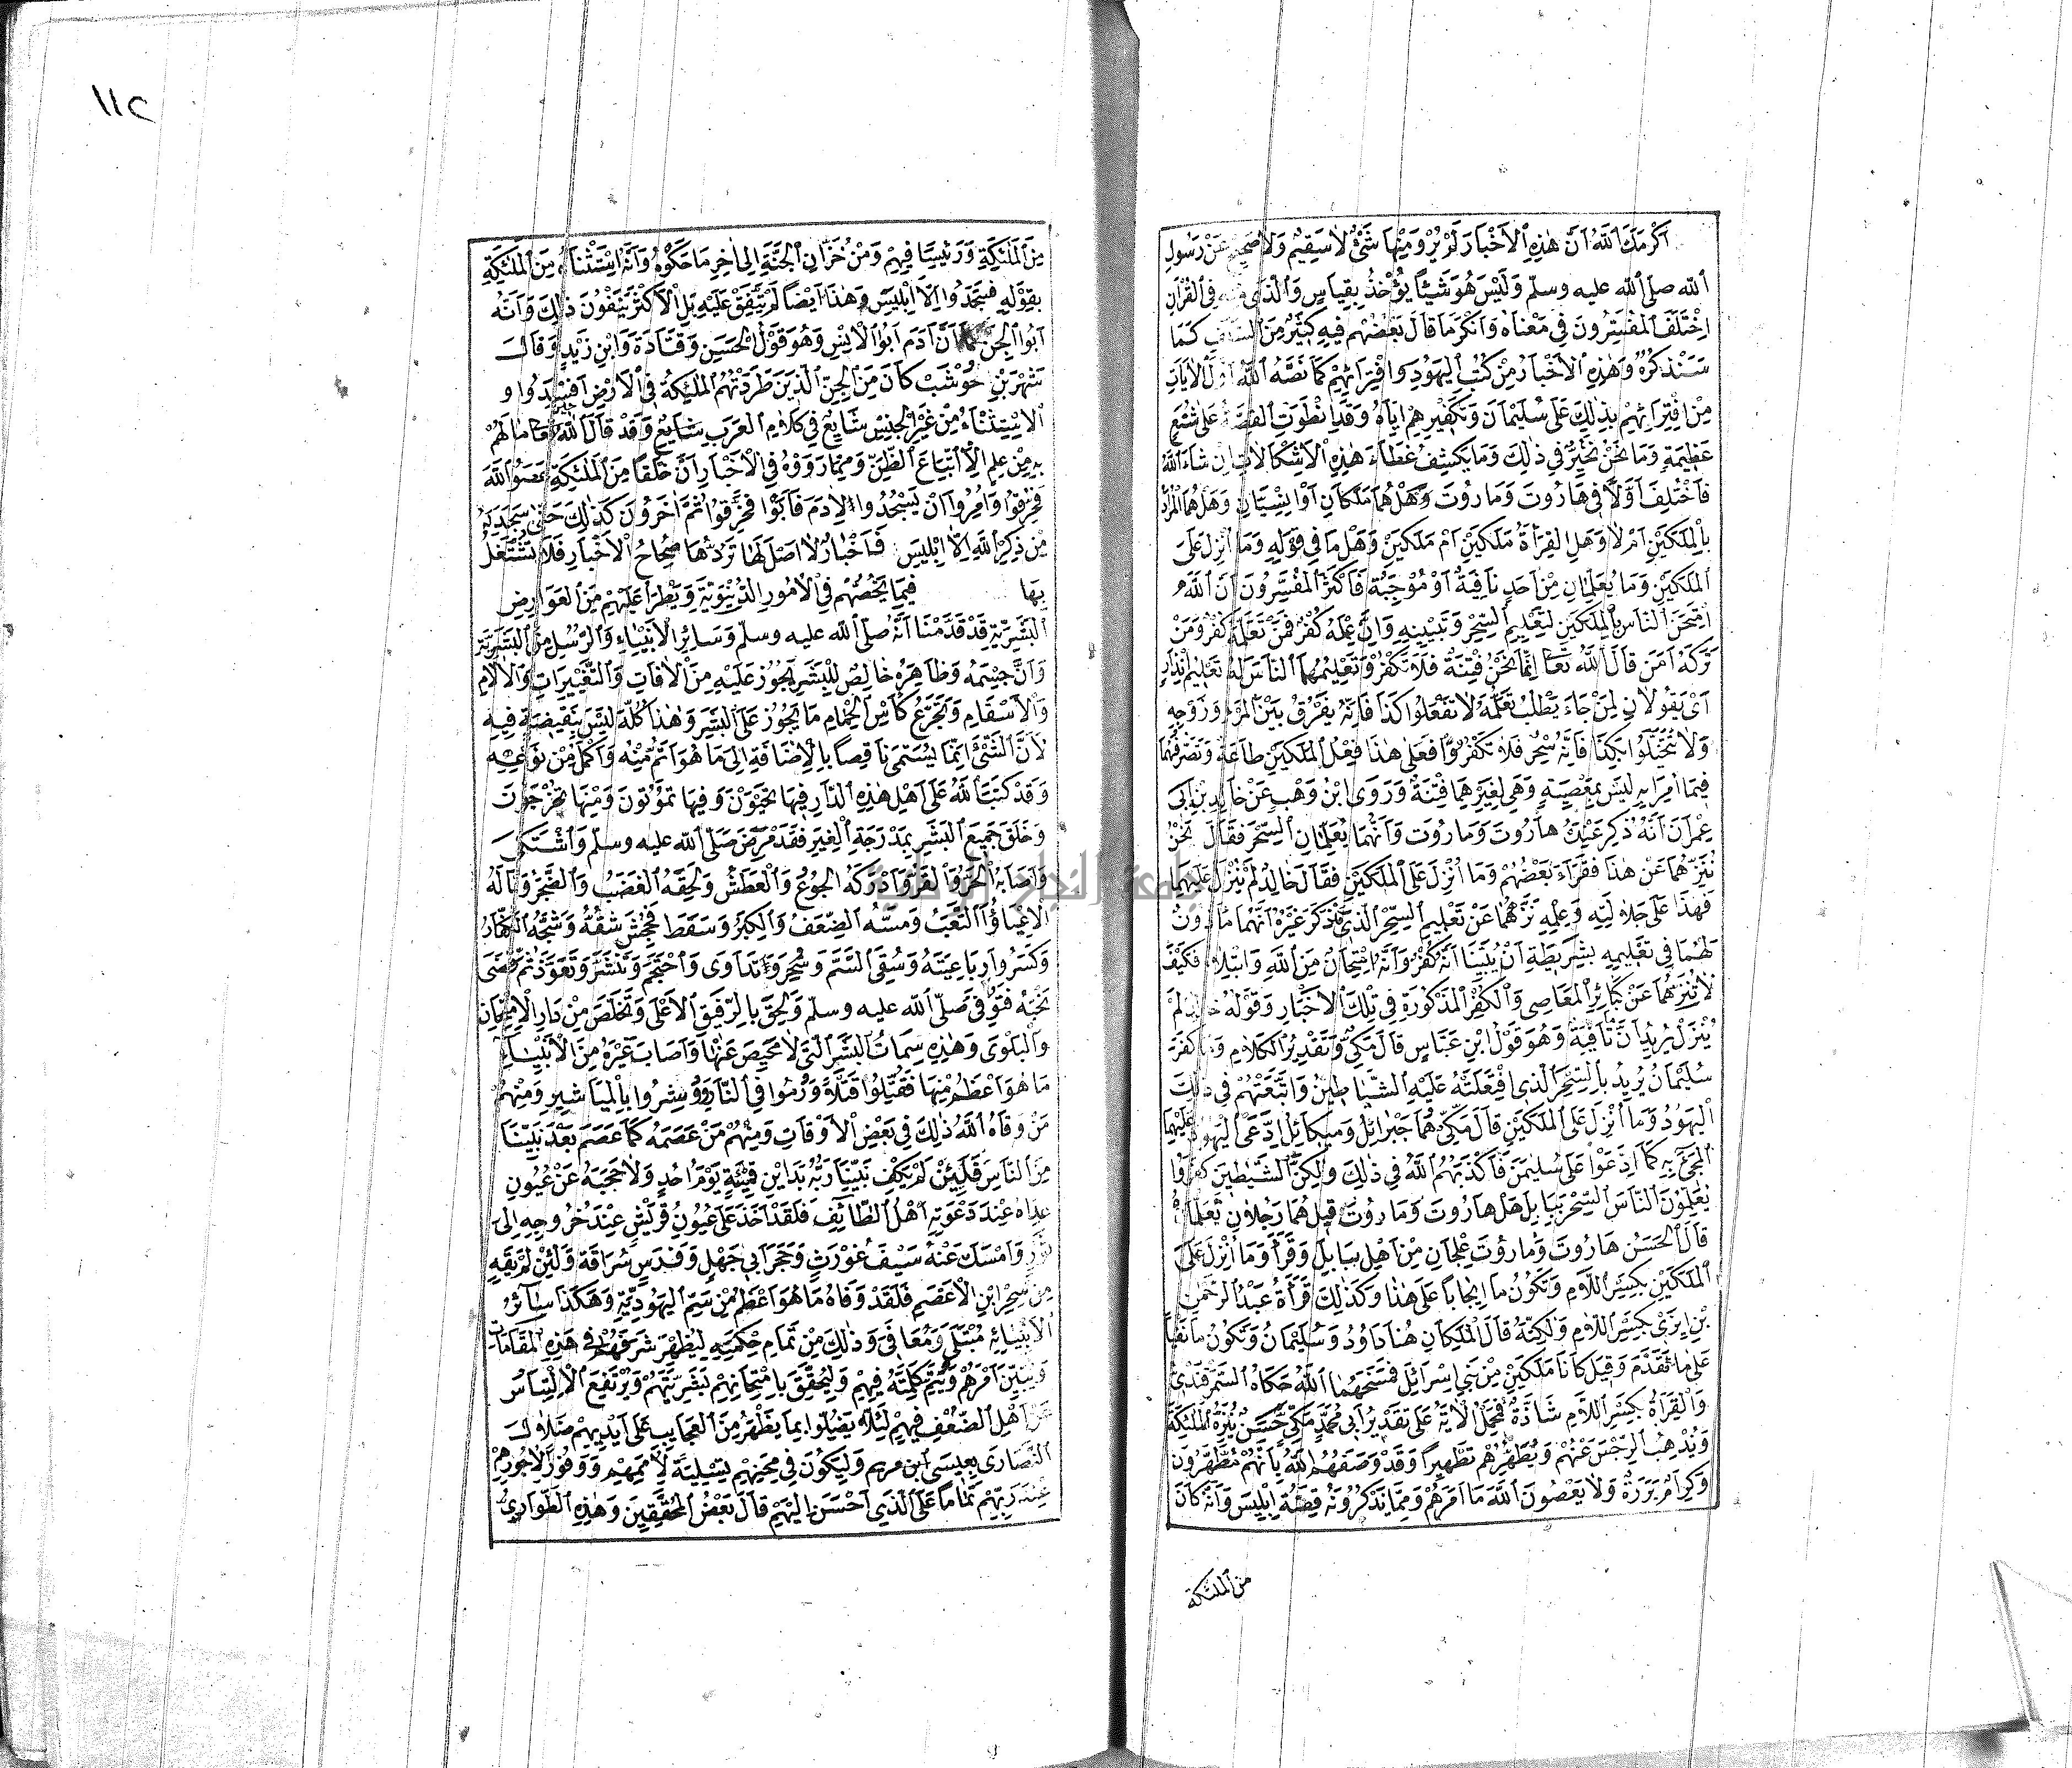 اكرمك الله ان هذه الاخبار لم يرو منها شئ لا سقيم ولا صحيح عن رسول
الله صلى الله عليه وسلم وليس هو شيئا يؤخذ بقياس والذى منه فى القران
اختلف المفسرون فى معناه وانكر ما قال بعضهم فيه كثير من السلف كما
سنذكره وهذه الاخبار من كتب اليهود وافترائهم كما نصه الله اول الايات
من افترائهم بذلك على سليمان وتكفيرهم اياه وقد انطوت القصة على شنع
عظيمة وما نحن نخبر فى ذلك وما يكشف غطاء هذه الاشكالات ان شاء الله
فاختلف اولا فى هاروت وماروت وهل هما ملكان او انسيان وهل هما المراد
بالملكين ام لا وهل القراءة ملكين ام ملكين وهل ما فى قوله وما انزل على
الملكين وما يعلمان من احد نافية او موجبة فاكثر المفسرون ان الله
امتحن الناس بالملكين لتعليم السحر وتبيينه وان عمله كفر فمن تعلمه كفر ومن
تركه امن قال الله تعا انما نحن فتنة فلا تكفر وتعليمهما الناس له تعليم انذار
اى يقولان لمن جاء يطلب تعلمه لا تفعلوا كذا فانه يفرق بين المرء وزوجه
ولا تتخيلوا بكذا فانه سحر فلا تكفروا فعلى هذا فعل الملكين طاعة وتصرفهما
فيما امرا به ليس بمعصية وهى لغيرهما فتنة وروى ابن وهب عن خالد بن ابى
عمران انه ذكر عنده هاروت وماروت وانهما يعلمان السحر فقال نحن
ننزههما عن هذا فقراء بعضهم وما انزل على الملكين فقال خالد لم ينزل عليهما
فهذا على جلالته وعلمه نزههما عن تعليم السحر الذى قد ذكر غيره انهما ماذون
لهما فى تعليمه بشريطة ان يبينا انه كفر وانه امتحان من الله وابتلاء فكيف
لا ننزههما عن كبائر المعاصى والكفر المذكورة فى تلك الاخبار وقوله خالد لم
ينزل يريد ان ما نافية وهو قول ابن عباس قال مكى وتقدير الكلام وما كفر
سليمان يريد بالسحر الذى افتعلته عليه الشياطين واتبعتهم فى ذلك
اليهود وما انزل على الملكين قال مكى هما جبرائل وميكائل ادعى اليهود عليهما
المجئ به كما ادعوا على سليمن فاكذبهم الله فى ذلك ولكن الشيطين كفروا
يعلمون الناس السحر ببابل هل هاروت وماروت قيل هما رجلان تعلماه
قال الحسن هاروت وماروت علجان من اهل ببابل وقرأ وما انزل على
الملكين بكسر اللام وتكون ما ايجابا على هذا وكذلك قرأة عبد الرحمن
بن ابزى بكسر اللام ولكنه قال الملكان هنا داود وسليمان وتكون ما نفيا
على ما تقدم وقيل كانا ملكين من بنى اسرائل فمسخهما الله حكاه السمرقندى
والقرأة بكسر اللام شاذة فحمل الاية على تقدير ابى محمد مكى حسن ينزه الملئكة
ويذهب الرجس عنهم ويطهرهم تطهيرا وقد وصفهم الله بانهم مطهرون
وكرام بررة ولا يعصون الله ما امرهم ومما يذكرونه قصة ابليس وانه كان
من الملئكة
١١٢
من الملئكة ورئيسا فيهم ومن خزان الجنة الى اخر ما حكوه وانه استثناه من الملئكة
بقوله فسجدوا الا ابليس وهذا ايضا لم يتفق عليه بل الاكثر ينفون ذلك وانه
ابوا الجن كما ان ادم ابوا الانس وهو قول الحسن وقتادة وابن زيد وقال
شهر بن حوشب كان من الجن الذين طردتهم الملئكة فى الارض افسدوا و
الاستثناء من غير الجنس شايع فى كلام العرب شايع وقد قال الله تعا ما لهم
به من علم الا اتباع الظن ومما رووه فى الاخبار ان خلقا من الملئكة عصوا الله
فحرقوا وامروا ان يسجدوا لادم فابوا فحرقوا ثم اخرون كذلك حتى سجد له
من ذكر الله الا ابليس فاخبار لا اصل لها تردها صحاح الاخبار فلا نشتغل
بها فيما يخصهم فى الامور الدنيوية ويطرأ عليهم من العوارض
البشرية قد قدمنا انه صلى الله عليه وسلم وسائر الانبياء والرسل من البشر
وان جسمه وظاهره خالص للبشر يجوز عليه من الافات والتغييرات والالام
والاسقام وتجرع كأس الحمام ما يجوز على البشر وهذا كله ليس بنقيصة فيه
لان الشئ انما يسمى ناقصا بالاضافة الى ما هو اتم منه واكمل من نوعه
وقد كتب الله على اهل هذه الدار فيها تحيون وفيها تموتون ومنها تخرجون
وخلق جميع البشر بمدرجة الغير فقد مرض صلى الله عليه وسلم واشتكى
واصابه الحر والقر وادركه الجوع والعطش ولحقه الغضب والضجر وناله
الاعياؤ والتعب ومسه الضعف والكبر وسقط فجحش شقه وشجه الكفار
وكسروا رباعيته وسقى السم وسحر وتداوى واحتجم وتنشر وتعوذ ثم قضى
نحبه فتوفى صلى الله عليه وسلم ولحق بالرفيق الاعلى وتخلص من دار الامتحان
والبلوى وهذه سمات البشر التى لا محيص عنها واصاب غيره من الانبياء
ما هو اعظم منها فقتلوا قتلا ورموا فى النار ووشروا بالمياشير ومنهم
من وقاه الله ذلك فى بعض الاوقات ومنهم من عصمه كما عصم بعد نبينا
من الناس فلئن لم يكف نبينا ربه يد ابن قميئة يوم احد ولا حجبه عن عيون
عداه عند دعوته اهل الطائف فلقد اخذ على عيون قريش عند خروجه الى
ثور وامسك عنه سيف غورث وحجر ابى جهل وفرس سراقة ولئن لم يقه
من سحر ابن الاعصم فلقد وقاه ما هو اعظم من سم اليهودية وهكذا سائر
الانبيائه مبتلى ومعافى وذلك من تمام حكمته ليظهر شرفهم فى هذه المقامات
ويبين امرهم ويتم كلمته فيهم وليحقق بامتحانهم بشريتهم ويرتفع الالتباس
عن اهل الضعف فيهم لئلا يضلوا بما يظهر من العجايب على ايديهم ضلال
النصارى بعيسى ابن مريم وليكون فى محنهم تسلية لاممهم ووفور لاجورهم
عند ربهم تماما على الذى احسن اليهم قال بعض المحققين وهذه الطوارئ